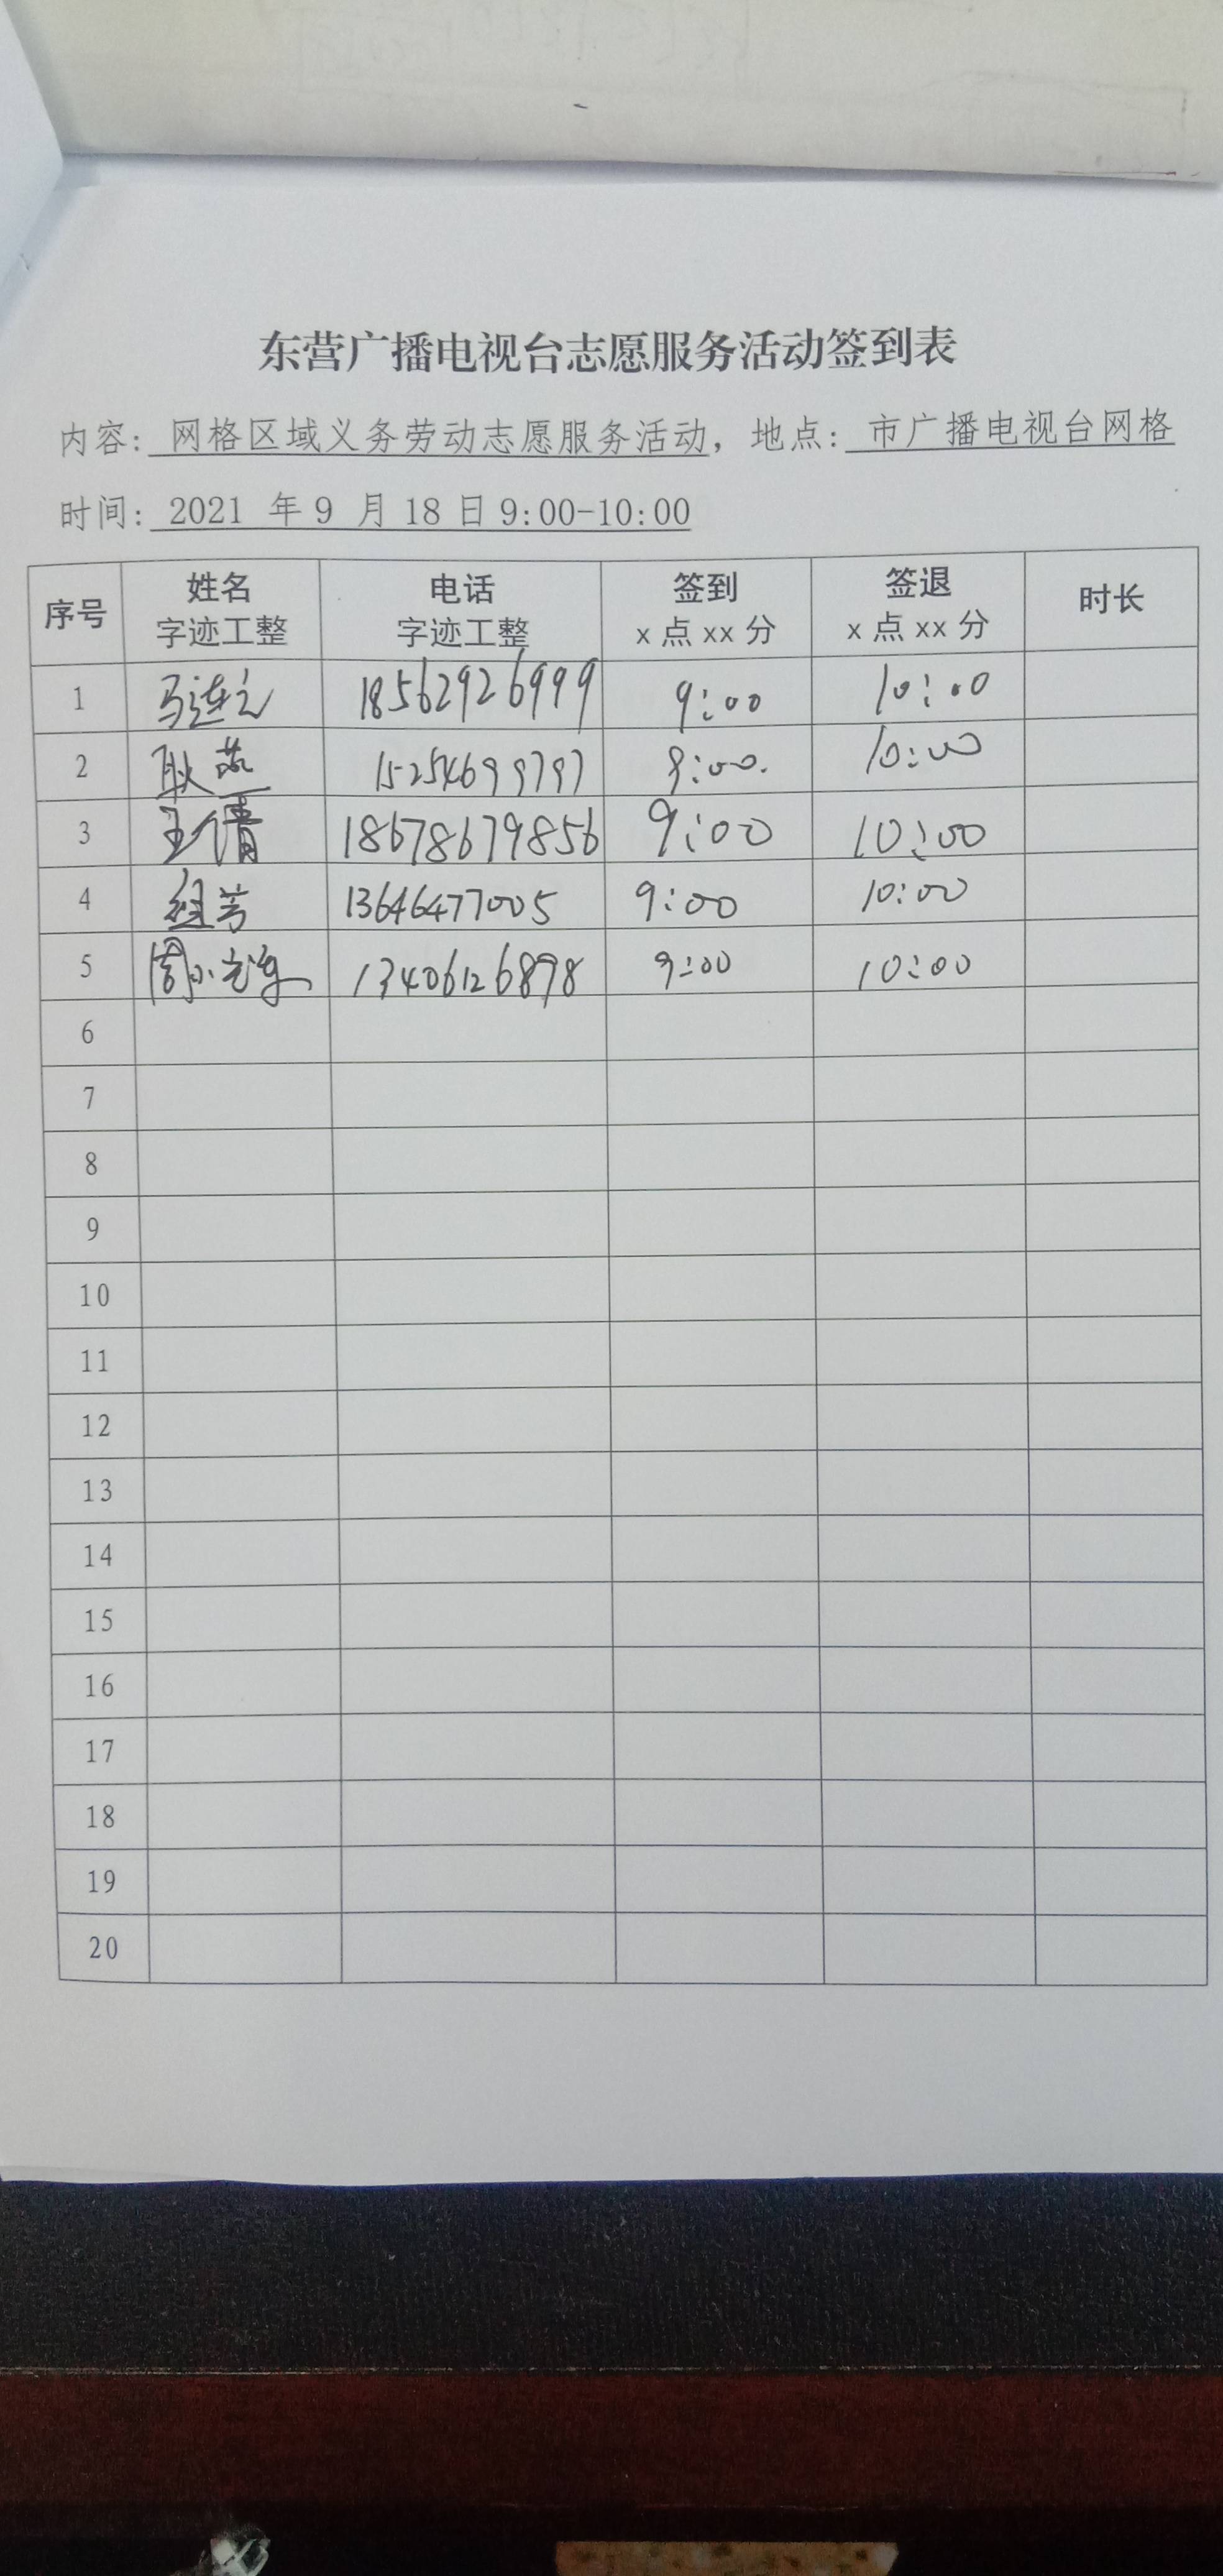 东营广播电视台志愿服务活动签到表
内容: 网格区域义务劳动志愿服务活动, 地点: 市广播电视台网格
时间: 2021 年 9 月 18 日 9:00-10:00
序号 姓名 字迹工整 电话 字迹工整 签到 x 点 xx 分 签退 x 点 xx 分 时长
1 马连之 18562926999 9:00 10:00
2 耿燕 15254699797 9:00. 10:00
3 王倩 18678679856 9:00 10:00
4 13646477005 9:00 10:00
5 周小 13406126898 9:00 10:00
6
7
8
9
10
11
12
13
14
15
16
17
18
19
20